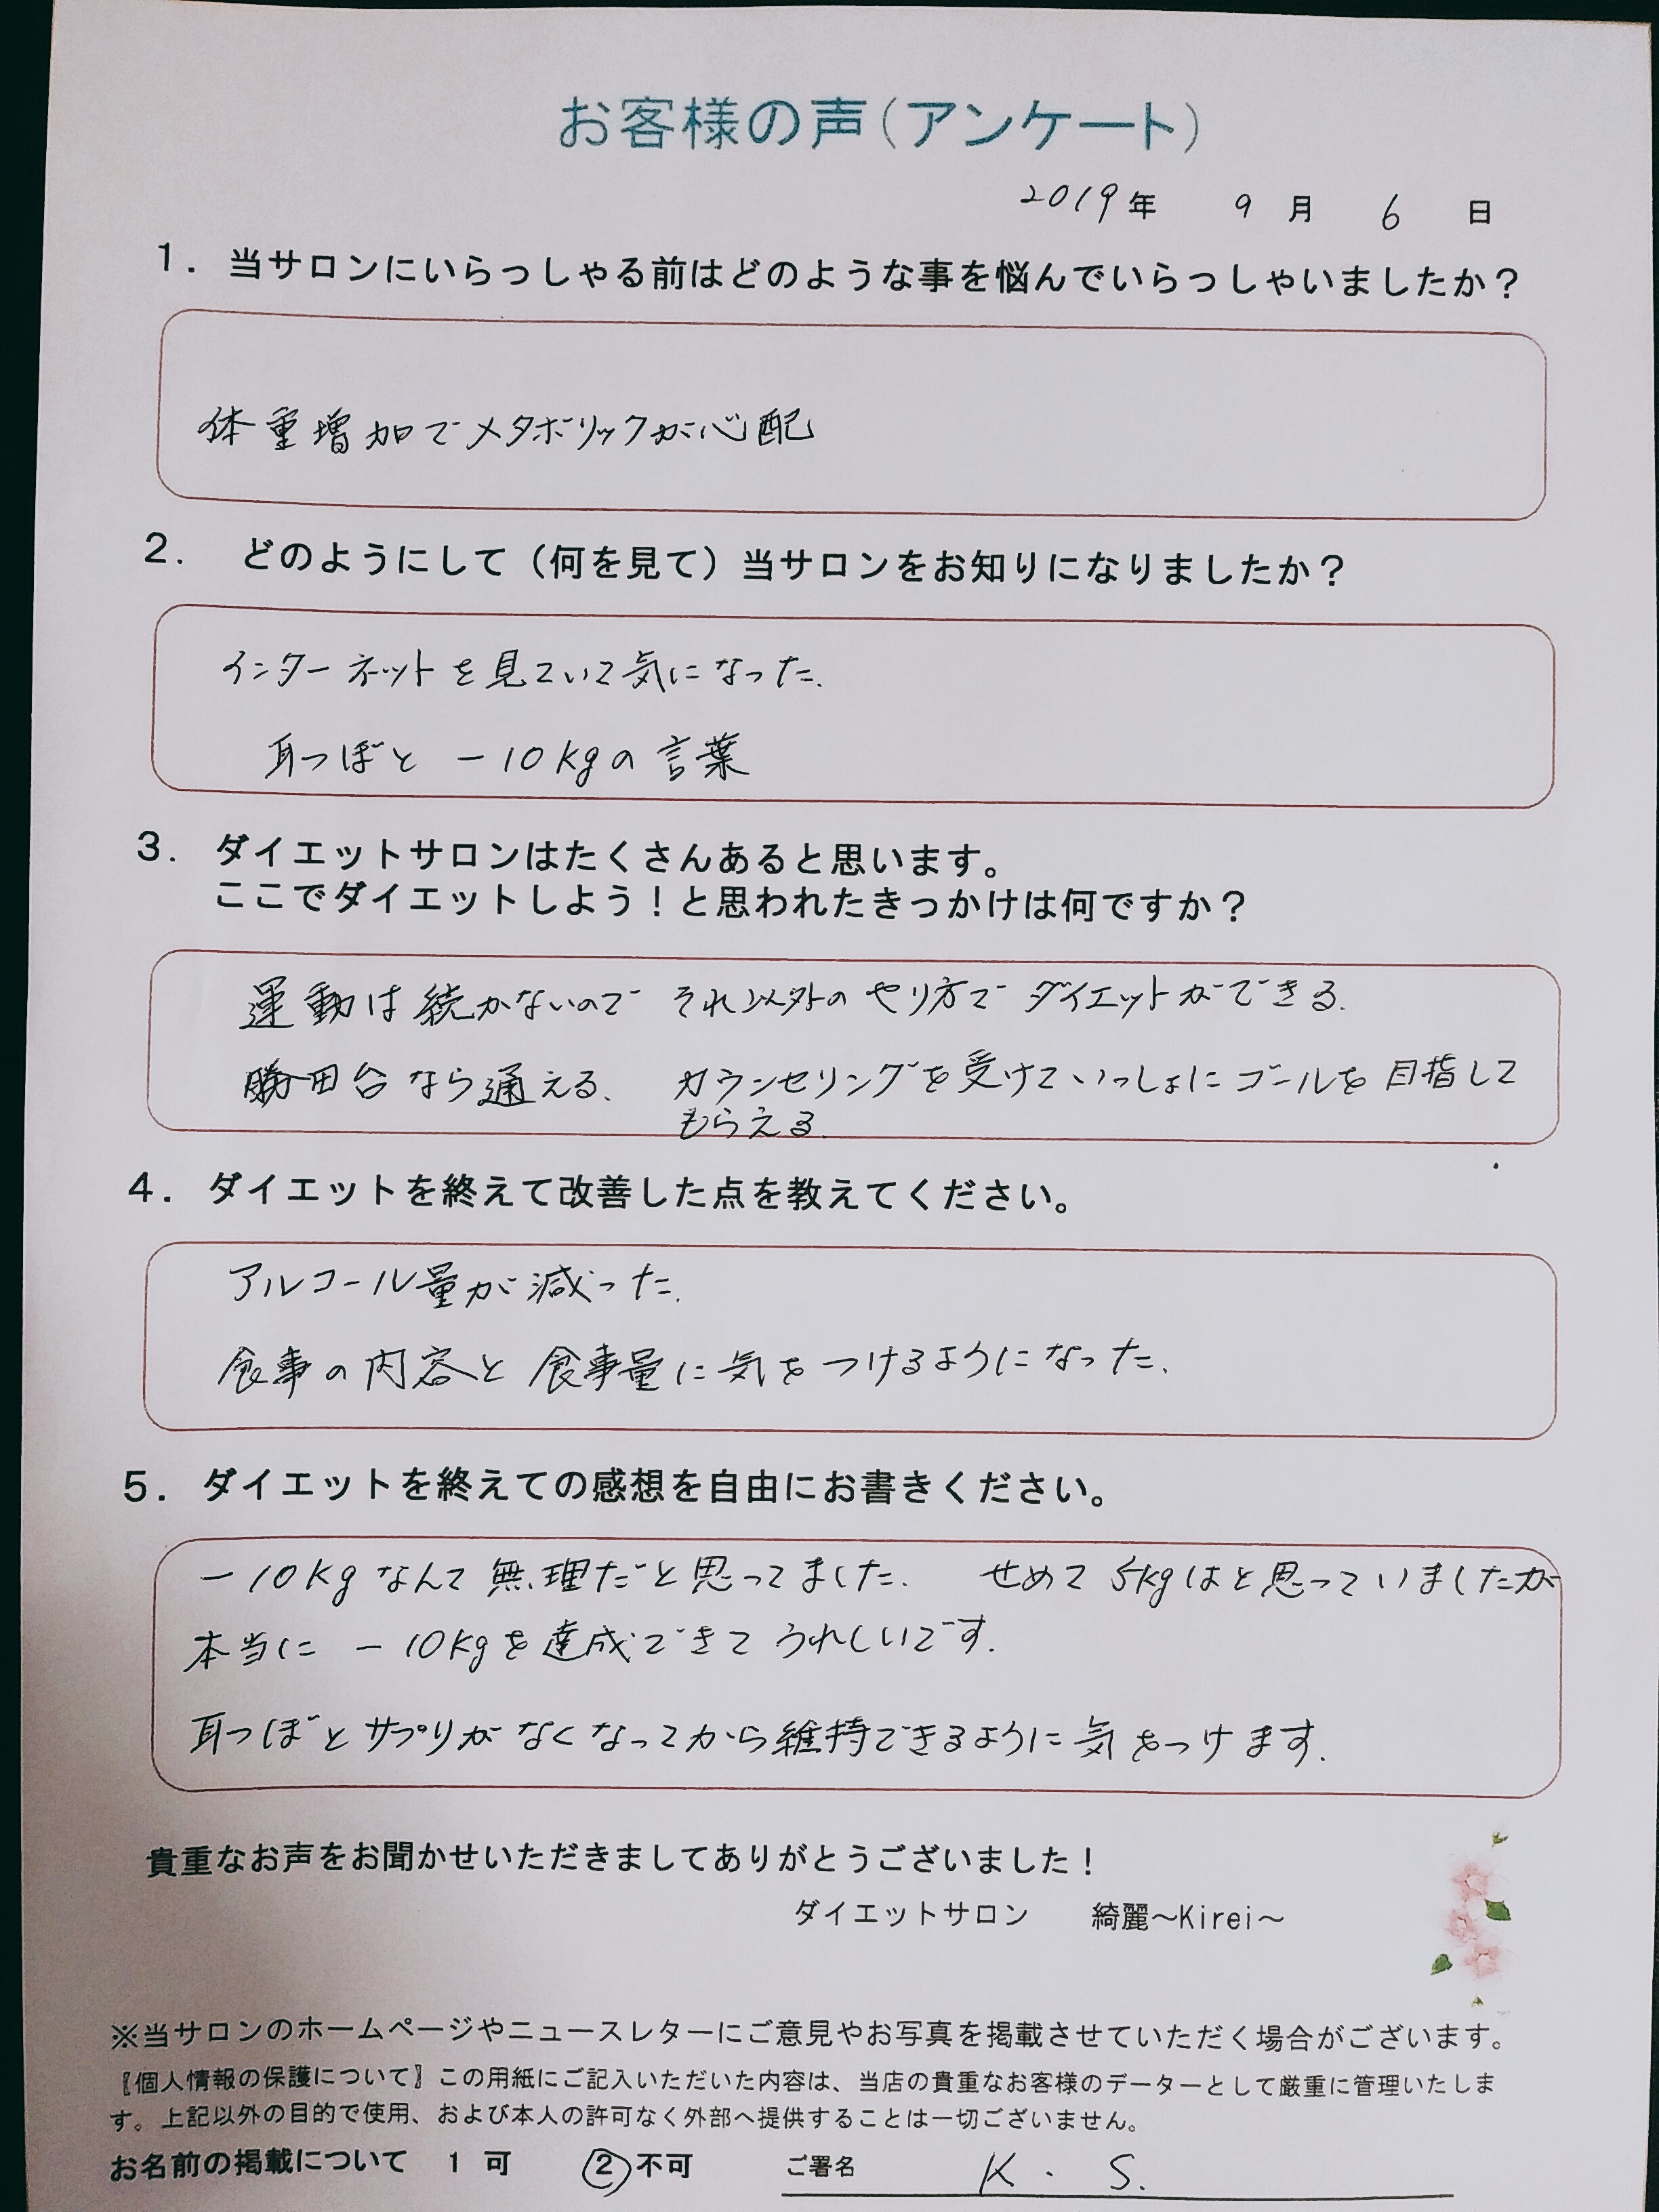 お客様の声（アンケート）
2019年 9月 6日
１．当サロンにいらっしゃる前はどのような事を悩んでいらっしゃいましたか？
体重増加でメタボリックが心配
２． どのようにして（何を見て）当サロンをお知りになりましたか？
インターネットを見ていて気になった.
耳つぼと －10kgの言葉
３．ダイエットサロンはたくさんあると思います。
ここでダイエットしよう！と思われたきっかけは何ですか？
運動は続かないので それ以外のやり方でダイエットができる.
勝田台なら通える. カウンセリングを受けていっしょにゴールを目指して
もらえる.
４．ダイエットを終えて改善した点を教えてください。
アルコール量が減った.
食事の内容と食事量に気をつけるようになった.
５．ダイエットを終えての感想を自由にお書きください。
－10kgなんて無理だと思ってました. せめて5kgはと思っていましたが
本当に －10kgを達成できてうれしいです.
耳つぼとサプリがなくなってから維持できるように気をつけます.
貴重なお声をお聞かせいただきましてありがとうございました！
ダイエットサロン 綺麗～Kirei～
※当サロンのホームページやニュースレターにご意見やお写真を掲載させていただく場合がございます。
〖個人情報の保護について〗この用紙にご記入いただいた内容は、当店の貴重なお客様のデーターとして厳重に管理いたしま
す。上記以外の目的で使用、および本人の許可なく外部へ提供することは一切ございません。
お名前の掲載について 1 可 ②不可 ご署名 K . S.